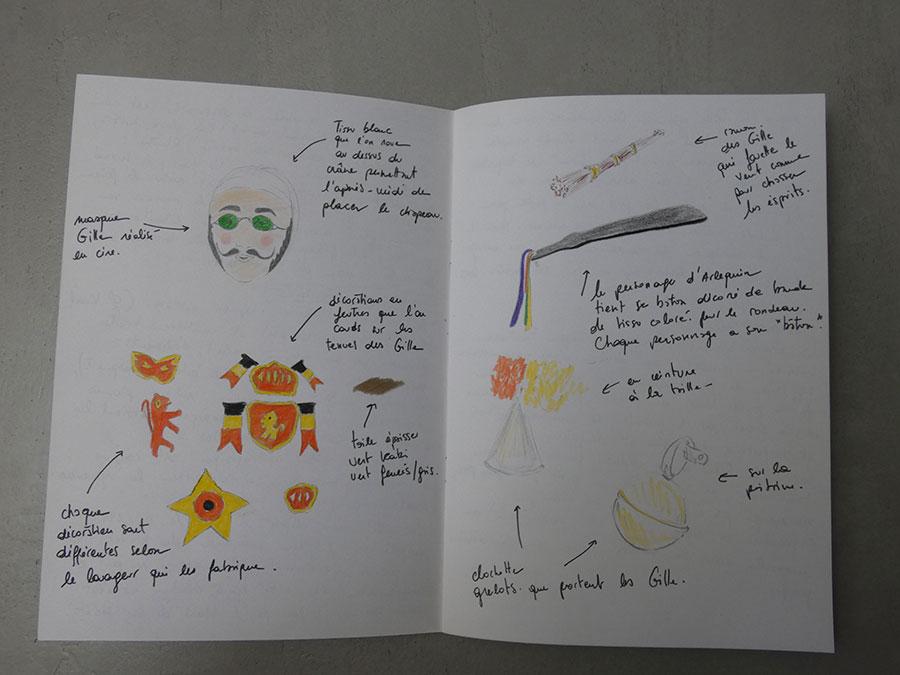 Tissu blanc
que l'on noue
au dessus du
crâne permettant
l'après-midi de
placer le chapeau.
masque
Gille réalisé
en cire.
décorations en
feutres que l'on
couds sur les
tenues des Gille
toile épaisse
vert kaki
vert foncés/gris.
chaque
décoration sont
différentes selon
le louageur qui les fabrique.
des Gille
qui fouette le
vent comme
pour chasser
les esprits.
le personnage d'Arlequin
tient se bâton décoré de bande
de tissu coloré. pour le rondeau.
Chaque personnage a son "bâton".
en ceinture
à la taille -
sur la
poitrine.
clochette
grelots. que portent les Gille.